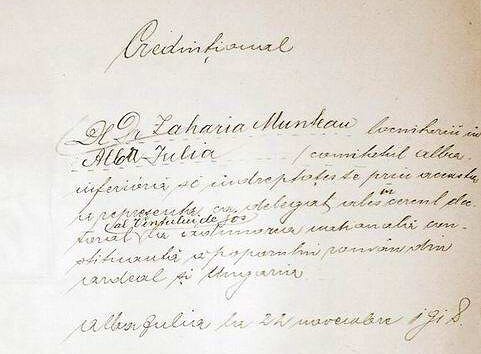 Credințional
Dl Dr Zaharia Munteau locuitoriu in
Alba-Iulia (comitetul alba
inferiora se îndreptățește prin aceasta
a representa ca delegat ales in cercul elec
toral al Vințului de jos la adunarea națională con
stituantă a poporului român din
Ardeal și Ungaria
Alba Iulia la 22 noiembre 1918.